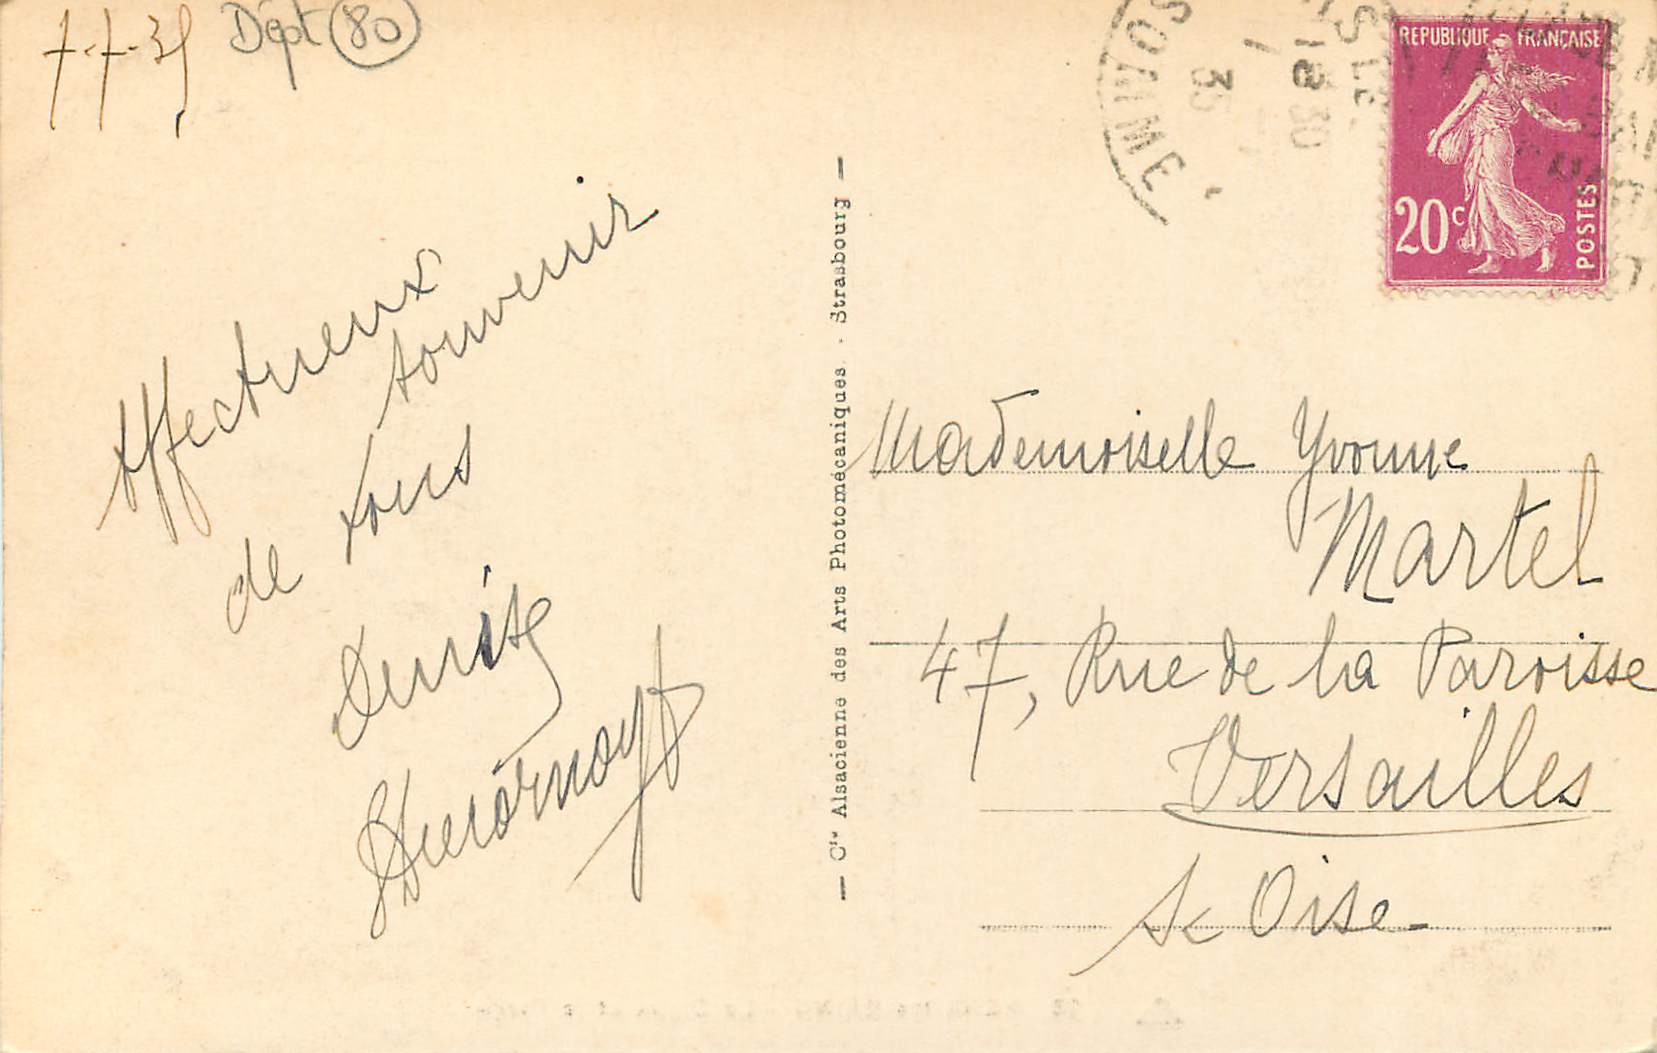 7-7-35
Dépt 80
Affectueux
souvenir
de tous
Denise
SOMME
18 30
7
35
REPUBLIQUE FRANÇAISE
20c
POSTES
Cie Alsacienne des Arts Photomécaniques. - Strasbourg
Mademoiselle Yvonne
Martel
47, Rue de la Paroisse
Versailles
S et Oise